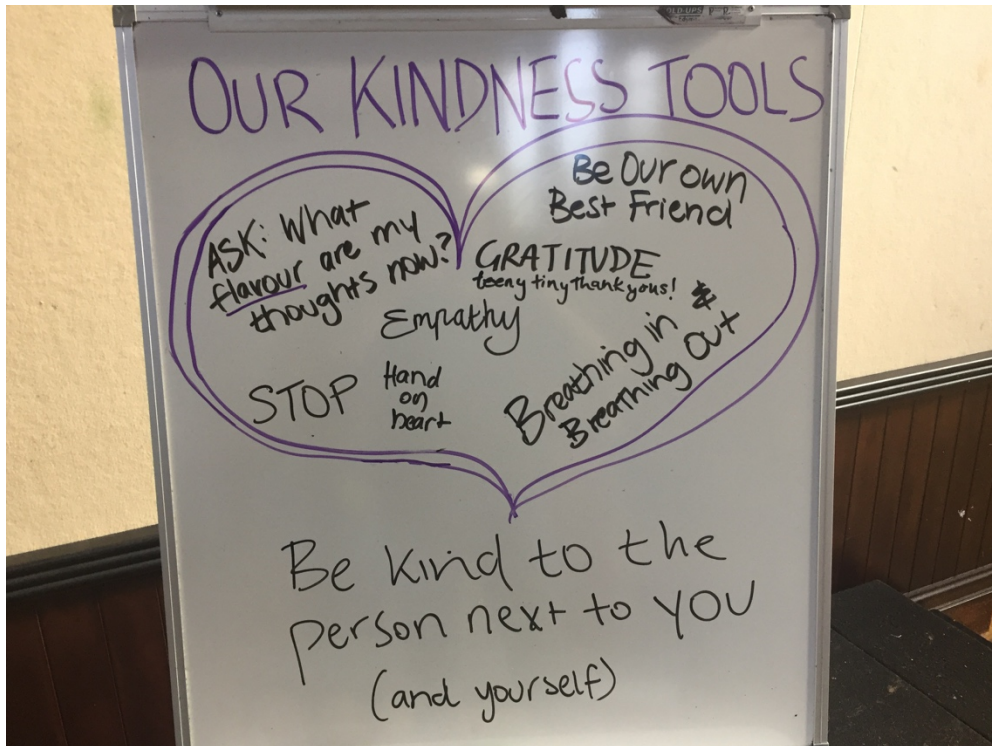 OUR KINDNESS TOOLS
ASK: What
flavour are my
thoughts now?
Be Our own
Best Friend
GRATITUDE
teeny tiny thankyous!
Empathy
STOP
Hand
on
heart
Breathing in &
Breathing Out
Be kind to the
person next to YOU
(and yourself)